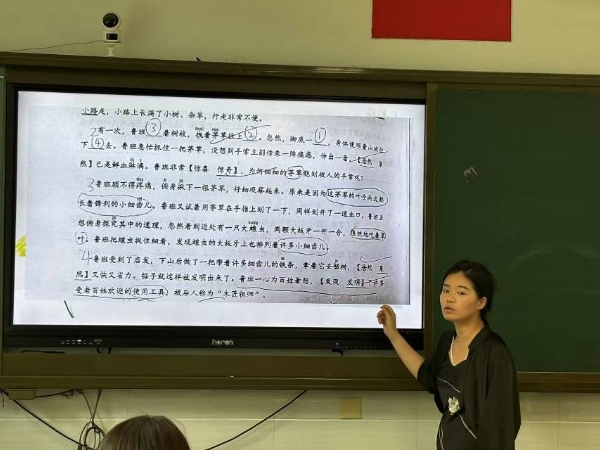 小路走，小路上长满了小树、杂草，行走非常不便。
2有一次，鲁班③着树枝，拽着茅草往上②。忽然，脚底一①，身体便顺着山坡往
下④去。鲁班急忙抓住一把茅草，没想到手掌立刻传来一阵痛感，伸出一看，【忽然 果
然】已是鲜血淋漓。鲁班非常【惊喜 惊奇】，为何细细的茅草能划破人的手掌呢？
3鲁班顾不得疼痛，俯身拔下一根茅草，仔细观察起来。原来是因为这茅草的叶子两边都
长着锋利的小细齿儿。鲁班又试着用茅草在手指上划了一下，同样划开了一道血口，鲁班正
想俯身探究其中的道理，忽然看到近处有一只大蝗虫，两颗大板牙一开一合，很快地吃着草
叶。鲁班把蝗虫捉住细看，发现蝗虫的大板牙上也排列着许多小细齿儿。
4鲁班受到了启发，下山后做了一把带着许多细齿儿的铁条，拿着它去锯树，【忽然 果
然】又快又省力。锯子就这样被发明出来了。鲁班一心为百姓着想，【发现 发明】了许多
受老百姓欢迎的使用工具，被后人称为“木匠祖师”。
heren